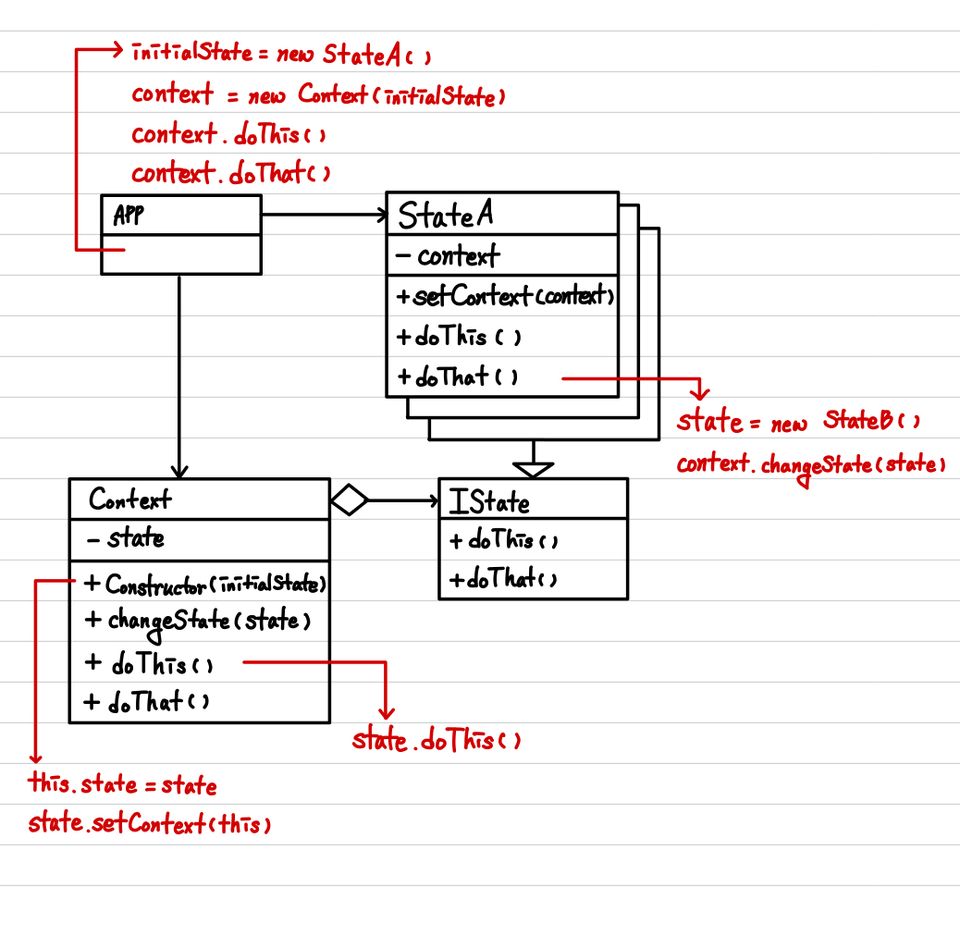 initialState = new StateA()
context = new Context(initialState)
context.doThis()
context.doThat()
APP
StateA
- context
+setContext(context)
+doThis()
+doThat()
state = new StateB()
context.changeState(state)
Context
- state
+ Constructor(initialState)
+ changeState(state)
+ doThis()
+ doThat()
IState
+ doThis()
+doThat()
state.doThis()
this.state = state
state.setContext(this)